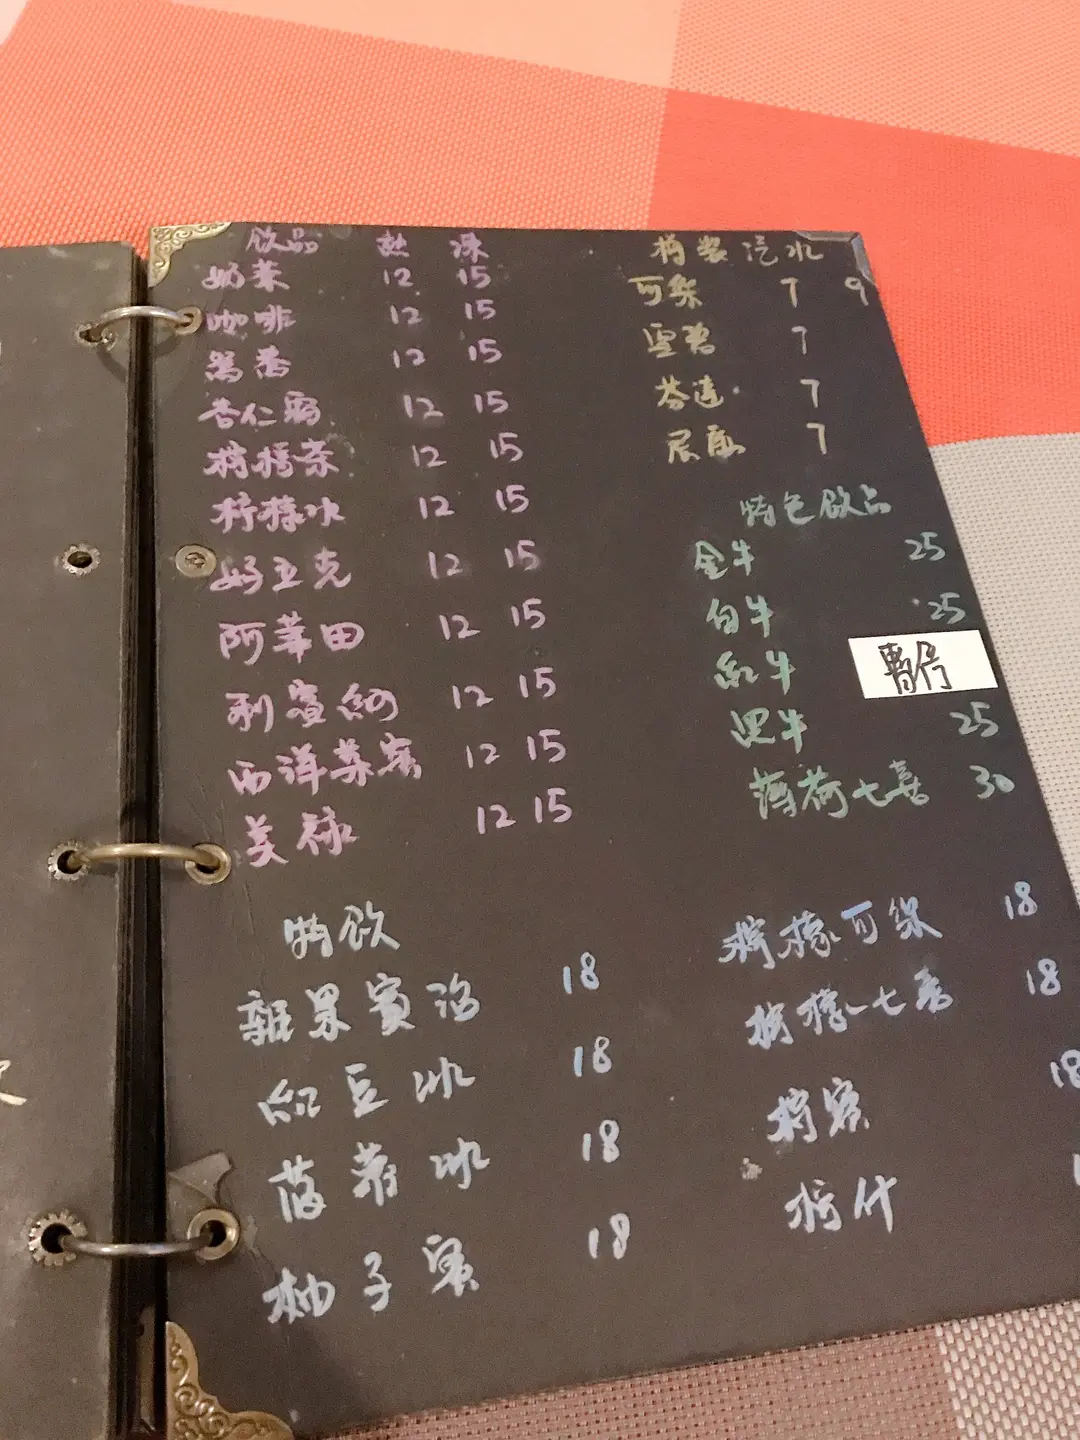 饮品 热 冻
奶茶 12 15
咖啡 12 15
鸳鸯 12 15
杏仁霜 12 15
柠檬茶 12 15
柠檬水 12 15
好立克 12 15
阿华田 12 15
利宾纳 12 15
西洋菜蜜 12 15
美禄 12 15
特饮
雜果賓治 18
红豆冰 18
菠萝冰 18
柚子蜜 18
樽装 汽水
可樂 7 9
雪碧 7
芬达 7
7
特色饮品
金牛 25
白牛 25
红牛 暫停
黑牛 25
薄荷七喜 30
柠檬可樂 18
柠檬七喜 18
柠蜜 18
柠什